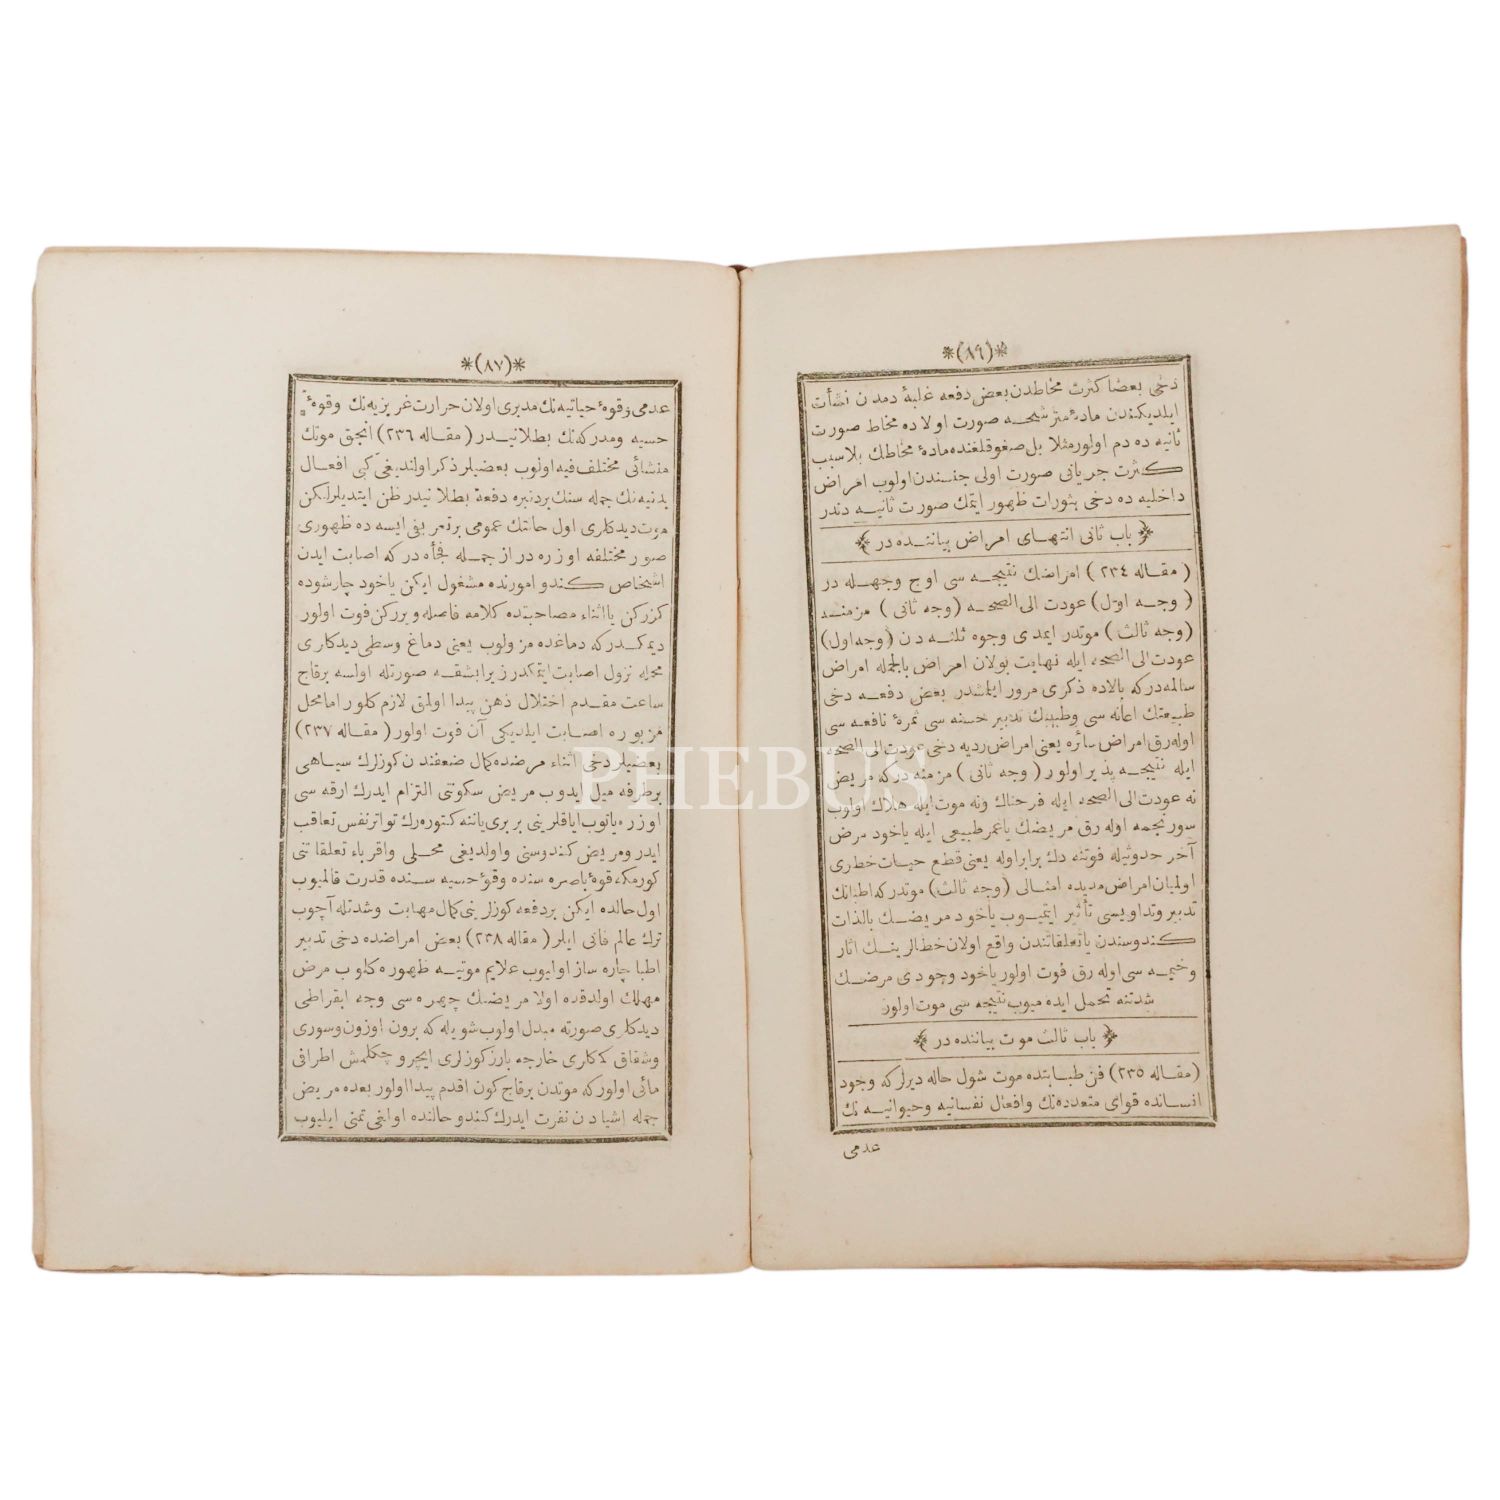 *(٨٦)*
دخی بعضا کثرت مخاطدن بعض دفعه غلبۀ دمدن نشأت
ایلدیکندن مادۀ مترشحه صورت اولاده مخاط صورت
ثانیه ده دم اولور مثلا بل صغوقلغنده مادۀ مخاطك بلاسبب
کثرت جریانی صورت اولی جنسندن اولوب امراض
داخلیه ده دخی بثورات ظهور ایتمك صورت ثانیه دندر
﴿ باب ثانی انتهای امراض بیاننده در ﴾
( مقاله ٢٣٤ ) امراضك نتیجه سی اوج وجهله در
( وجه اول ) عودت الی الصحه ( وجه ثانی ) مزمنه
( وجه ثالث ) موتدر ایمدی وجوه ثلثه دن ( وجه اول )
عودت الی الصحه ایله نهایت بولان امراض بالجمله امراض
سالمه درکه بالاده ذکری مرور ایلمشدر بعض دفعه دخی
طبیعتك اعانه سی وطبیبك تدبیر حسنه سی ثمرۀ نافعه سی
اوله رق امراض سائره یعنی امراض ردیه دخی عودت الی الصحه
ایله نتیجه پذیر اولور ( وجه ثانی ) مزمنه درکه مریض
نه عودت الی الصحه ایله فرحناك ونه موت ایله هلاك اولوب
سورنجمه اوله رق مریضك یا عمر طبیعی ایله یاخود مرض
آخر حدوثیله فوتنه دك برابر اوله یعنی قطع حیات خطری
اولمیان امراض مدیده امثالی ( وجه ثالث ) موتدرکه اطبانك
تدبیر وتداویسی تأثیر ایتمیوب یاخود مریضك بالذات
کندوسندن یا تعلقاتندن واقع اولان خطالرینك اثار
وخیمه سی اوله رق فوت اولور یاخود وجودی مرضك
شدتنه تحمل ایده میوب نتیجه سی موت اولور
﴿ باب ثالث موت بیاننده در ﴾
( مقاله ٢٣٥ ) فن طبابتده موت شول حاله دیرلر که وجود
انسانده قوای متعدده نك وافعال نفسانیه وحیوانیه نك
عدمی
*(٨٧)*
عدمی وقوۀ حیاتیه نك مدبری اولان حرارت غریزیه نك وقوۀ
حسیه ومدرکه نك بطلانیدر ( مقاله ٢٣٦ ) انجق موتك
منشائی مختلف فیه اولوب بعضیلر ذکر اولندیغی کبی افعال
بدنیه نك جمله سنك بردنبره دفعة بطلانیدر ظن ایتدیلر لکن
موت دیدکلری اول حالتك عمومی بر تعریفی ایسه ده ظهوری
صور مختلفه اوزره در از جمله فجأه درکه اصابت ایدن
اشخاص کندو امورنده مشغول ایکن یاخود چارشوده
کزرکن یا اثناء مصاحبتده کلامه فاصله ویررکن فوت اولور
دیمکدرکه دماغده مزولوب یعنی دماغ وسطی دیدکلری
محله نزول اصابت ایتمکدر زیرا بشقه صورتله اولسه برقاج
ساعت مقدم اختلال ذهن پیدا اولمق لازم کلور اما محل
مزبوره اصابت ایلدیکی آن فوت اولور ( مقاله ٢٣٧ )
بعضیلر دخی اثناء مرضده کمال ضعفندن کوزلرك سیاهی
برطرفه میل ایدوب مریض سکوتی التزام ایدرك ارقه سی
اوزره یاتوب ایاقلرینی بربری یاننه کتوره رك تواتر نفس تعاقب
ایدر ومریض کندوسنی واولدیغی محلی واقرباء تعلقاتنی
کورمکه قوۀ باصره سنده وقوۀ حسیه سنده قدرت قالمیوب
اول حالده ایکن بردفعه کوزلرینی کمال مهابت وشدتله آچوب
ترك عالم فانی ایلر ( مقاله ٢٣٨ ) بعض امراضده دخی تدبیر
اطبا چاره ساز اولیوب علایم موتیه ظهوره کلوب مرض
مهلك اولدقده اولا مریضك چهره سی وجه ابقراطی
دیدکلری صورته مبدل اولوب شویله که برون اوزون وسوری
وشقاق کاری خارجه بارز کوزلری ایچرو چکلمش اطرافی
مائی اولور که موتدن برقاج کون اقدم پیدا اولور بعده مریض
جمله اشیادن نفرت ایدرك کندو حالنده اولمغی تمنی ایلیوب
PHEBUS